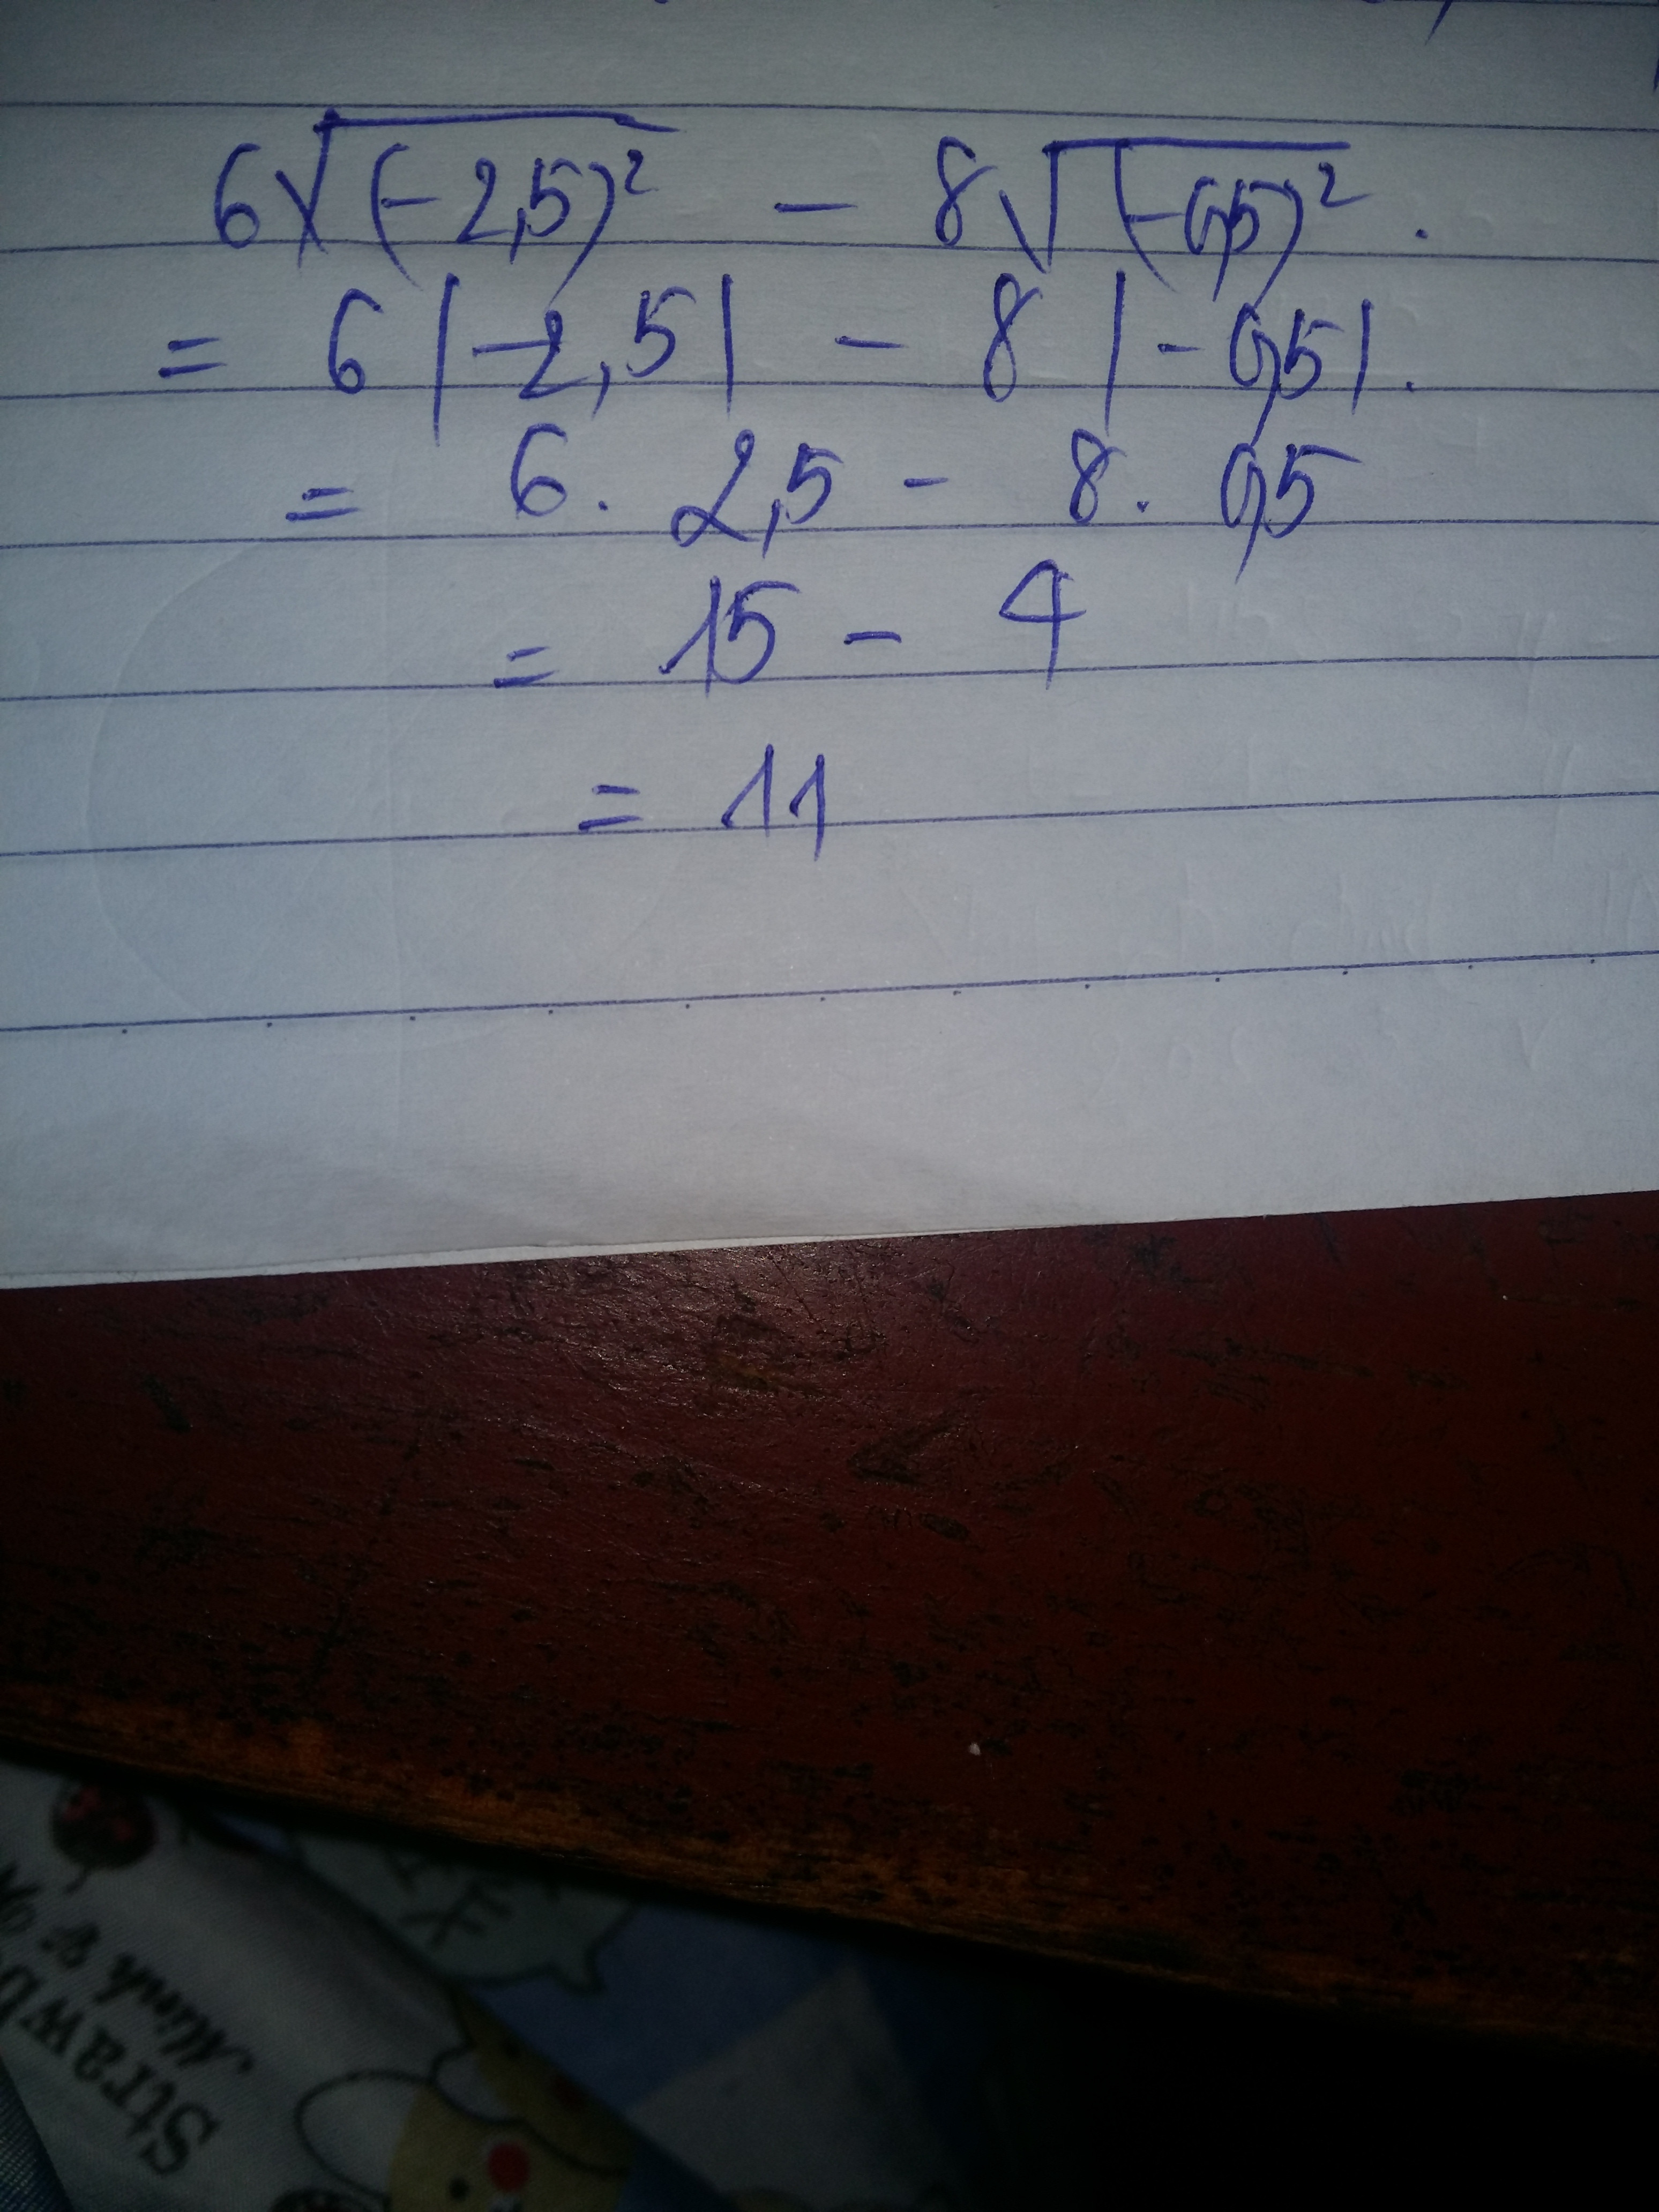 6√(-2,5)² - 8√(-0,5)².
= 6|-2,5| - 8|-0,5|.
= 6. 2,5 - 8. 0,5
= 15 - 4
= 11
Strawb
Mink &